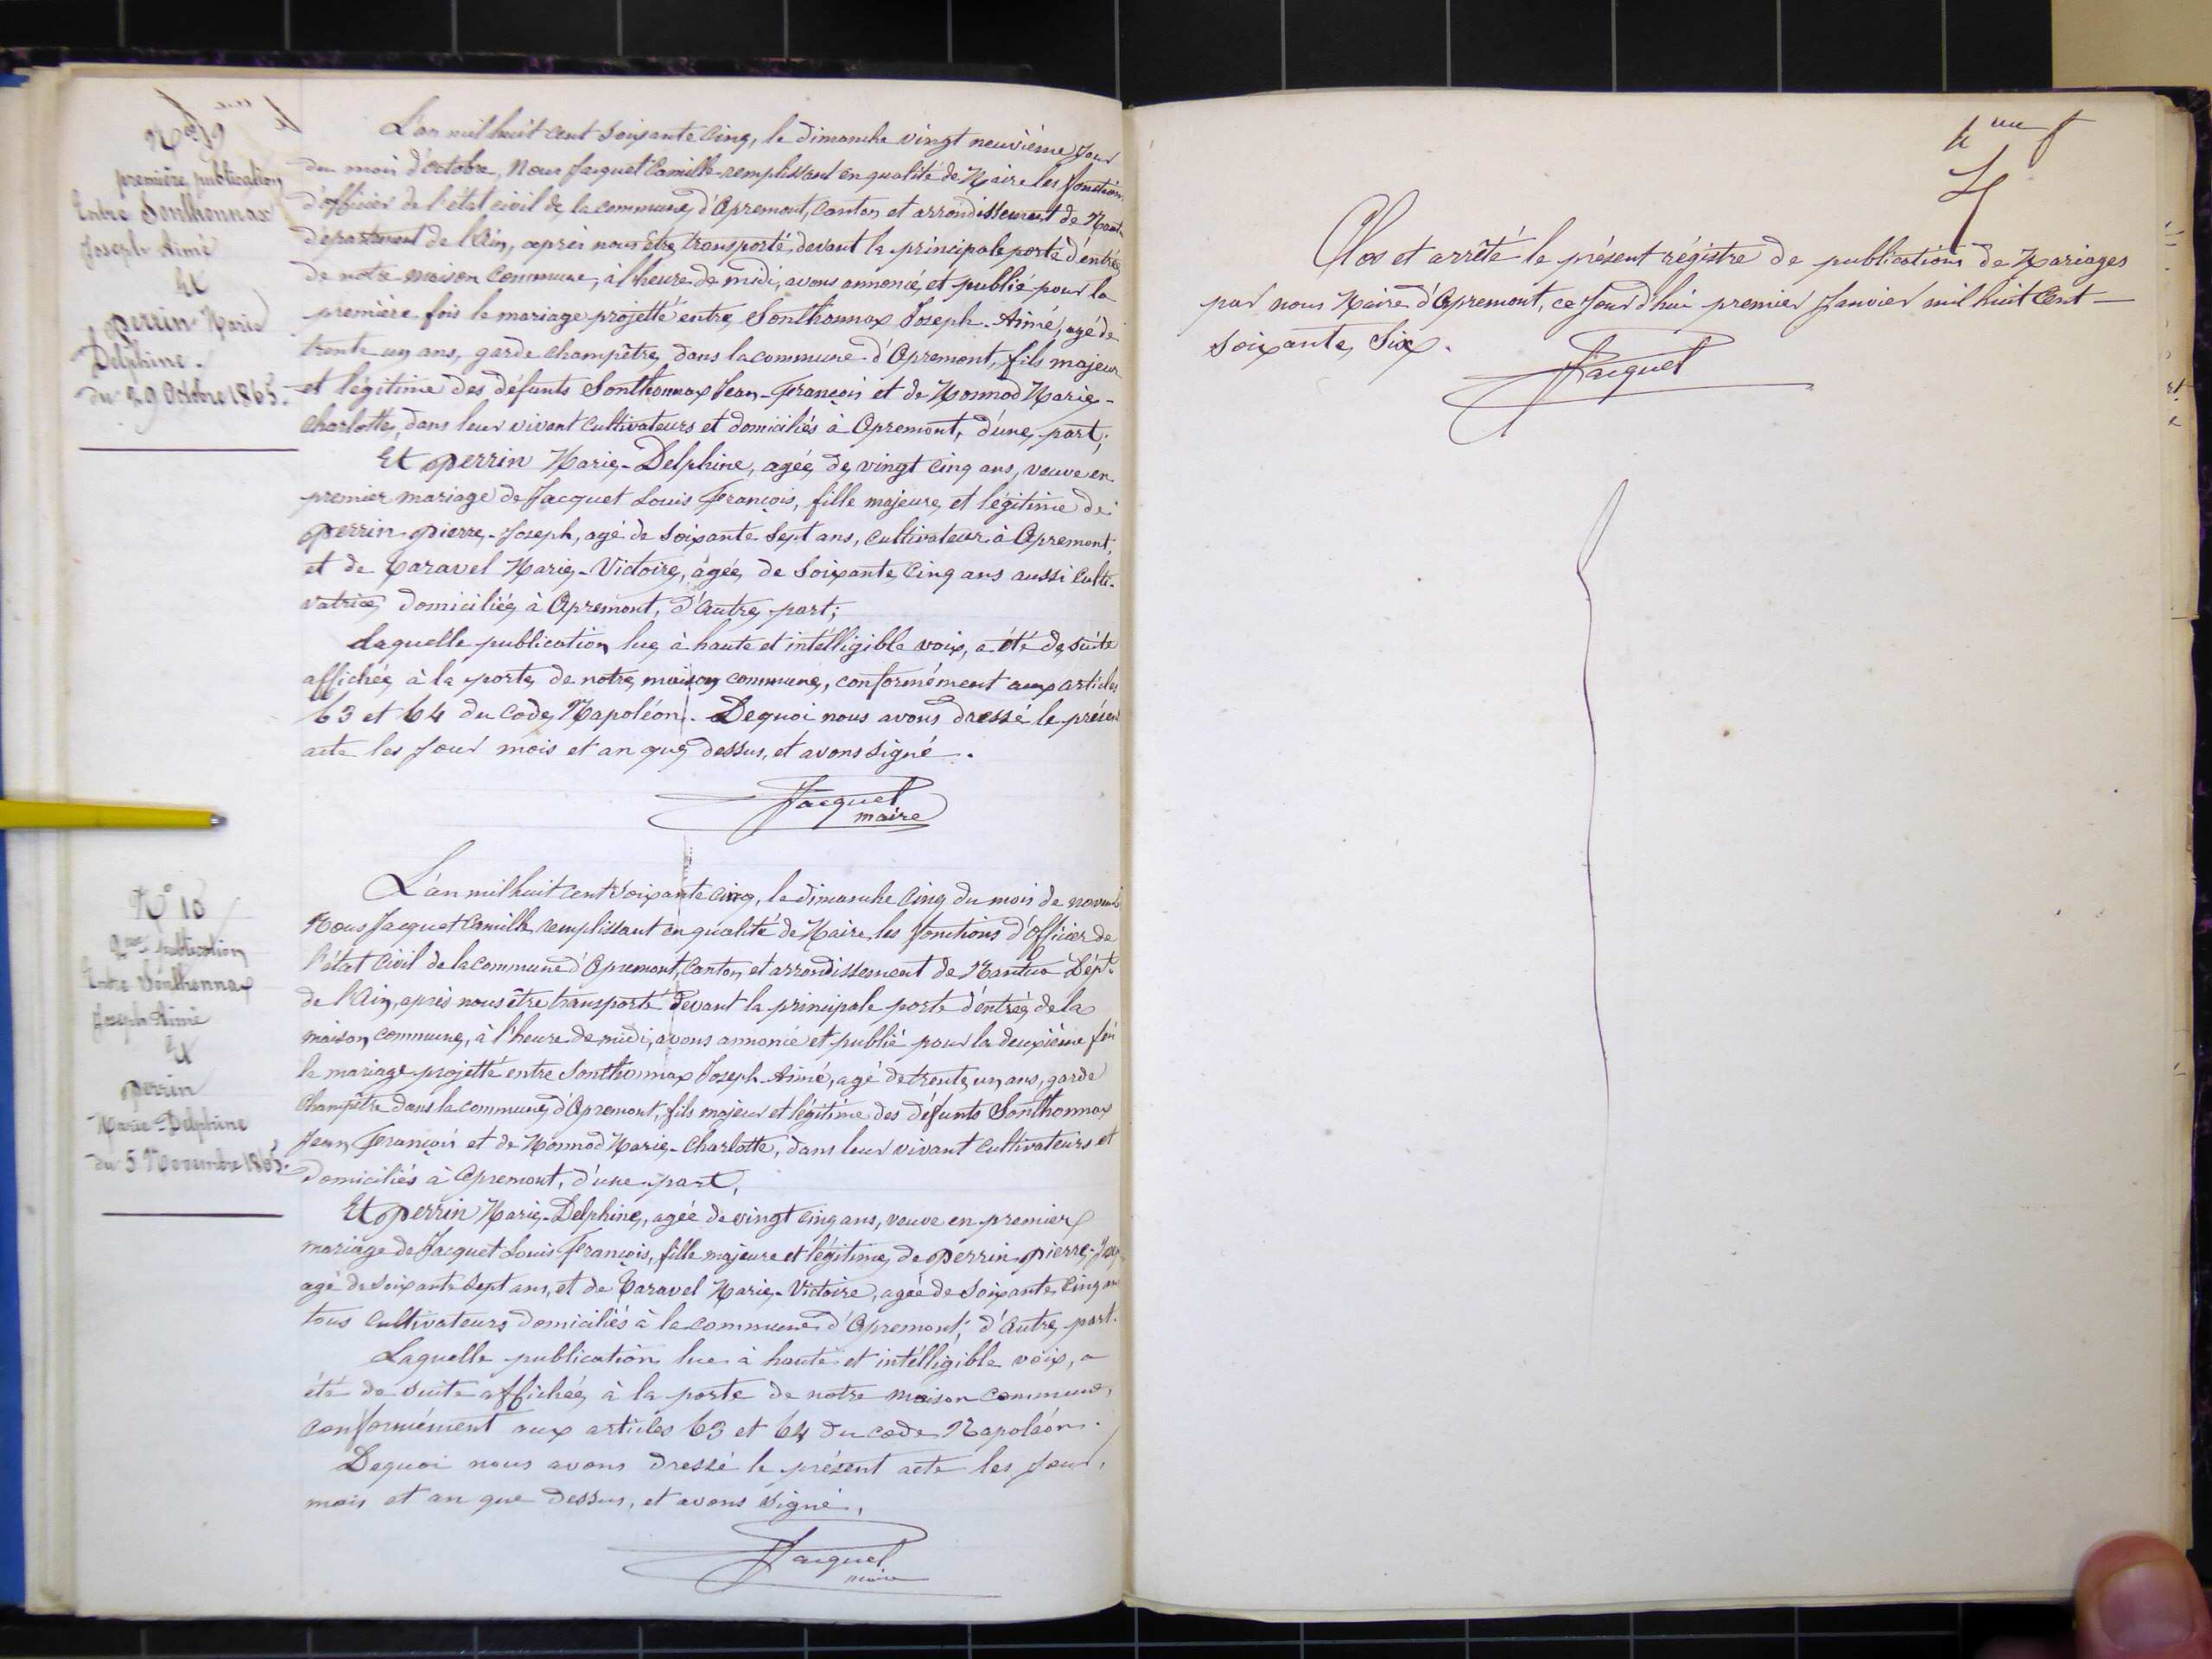 N° 9
première publication
Entre Sonthonnax
Joseph Aimé
Et
perrin Marie
Delphine.
du 29 Octobre 1865.
L'an mil huit cent soixante cinq, le dimanche vingt neuvième jour
du mois d'octobre, Nous Jacquet Camille remplissant en qualité de Maire les fonctions
d'officier de l'état civil de la commune d'Apremont, canton et arrondissement de Nant
département de l'Ain, après nous être transporté devant la principale porte d'entrée
de notre maison commune, à l'heure de midi, avons annoncé et publié pour la
première fois le mariage projetté entre Sonthonnax Joseph-Aimé, agé de
trente un ans, garde champêtre dans la commune d'Apremont, fils majeur
et légitime des défunts Sonthonnax Jean-François et de Monnod Marie-
Charlotte, dans leur vivant cultivateurs et domiciliés à Apremont, d'une part;
Et perrin Marie-Delphine, agée de vingt cinq ans, veuve en
premier mariage de Jacquet Louis François, fille majeure et légitime de
perrin pierre-Joseph, agé de soixante sept ans, cultivateur à Apremont,
et de Caravel Marie-Victoire, âgée de soixante cinq ans aussi culti-
vatrice domiciliée à Apremont, d'autre part;
Laquelle publication lue à haute et intélligible voix, a été de suite
affichée à la porte de notre maison commune, conformément aux articles
63 et 64 du code Napoléon. De quoi nous avons dressé le présent
acte les jour mois et an que dessus, et avons signé.
Jacquet
maire
N° 10
2me publication
Entre Sonthonnax
Joseph Aimé
Et
perrin
Marie-Delphine
du 5 Novembre 1865.
L'an mil huit cent soixante cinq, le dimanche cinq du mois de novemb
Nous Jacquet Camille remplissant en qualité de Maire les fonctions d'officier de
l'état civil de la commune d'Apremont, canton et arrondissement de Nantua Dépt.
de l'Ain, après nous être transporté devant la principale porte d'entrée de la
maison commune, à l'heure de midi, avons annoncé et publié pour la deuxième foi
le mariage projetté entre Sonthonnax Joseph-Aimé, agé de trente un ans, garde
Champêtre dans la commune d'Apremont, fils majeur et légitime des défunts Sonthonnax
Jean François et de Monnod Marie-Charlotte, dans leur vivant cultivateurs et
domiciliés à Apremont, d'une part,
Et perrin Marie-Delphine, agée de vingt cinq ans, veuve en premier
mariage de Jacquet Louis François, fille majeure et légitime de perrin pierre-Josep
agé de soixante sept ans, et de Caravel Marie-Victoire, agée de soixante cinq ans
tous cultivateurs domiciliés à la commune d'Apremont, d'autre part.
Laquelle publication lue à haute et intélligible voix, a
été de suite affichée à la porte de notre maison commune,
conformément aux articles 63 et 64 du code Napoléon.
De quoi nous avons dressé le présent acte les jour,
mois et an que dessus, et avons signé,
Jacquet
maire
Clos et arrêté le présent régistre de publications de Mariages
par nous Maire d'Apremont, ce jourd'hui premier Janvier mil huit Cent
soixante Six.
Jacquet